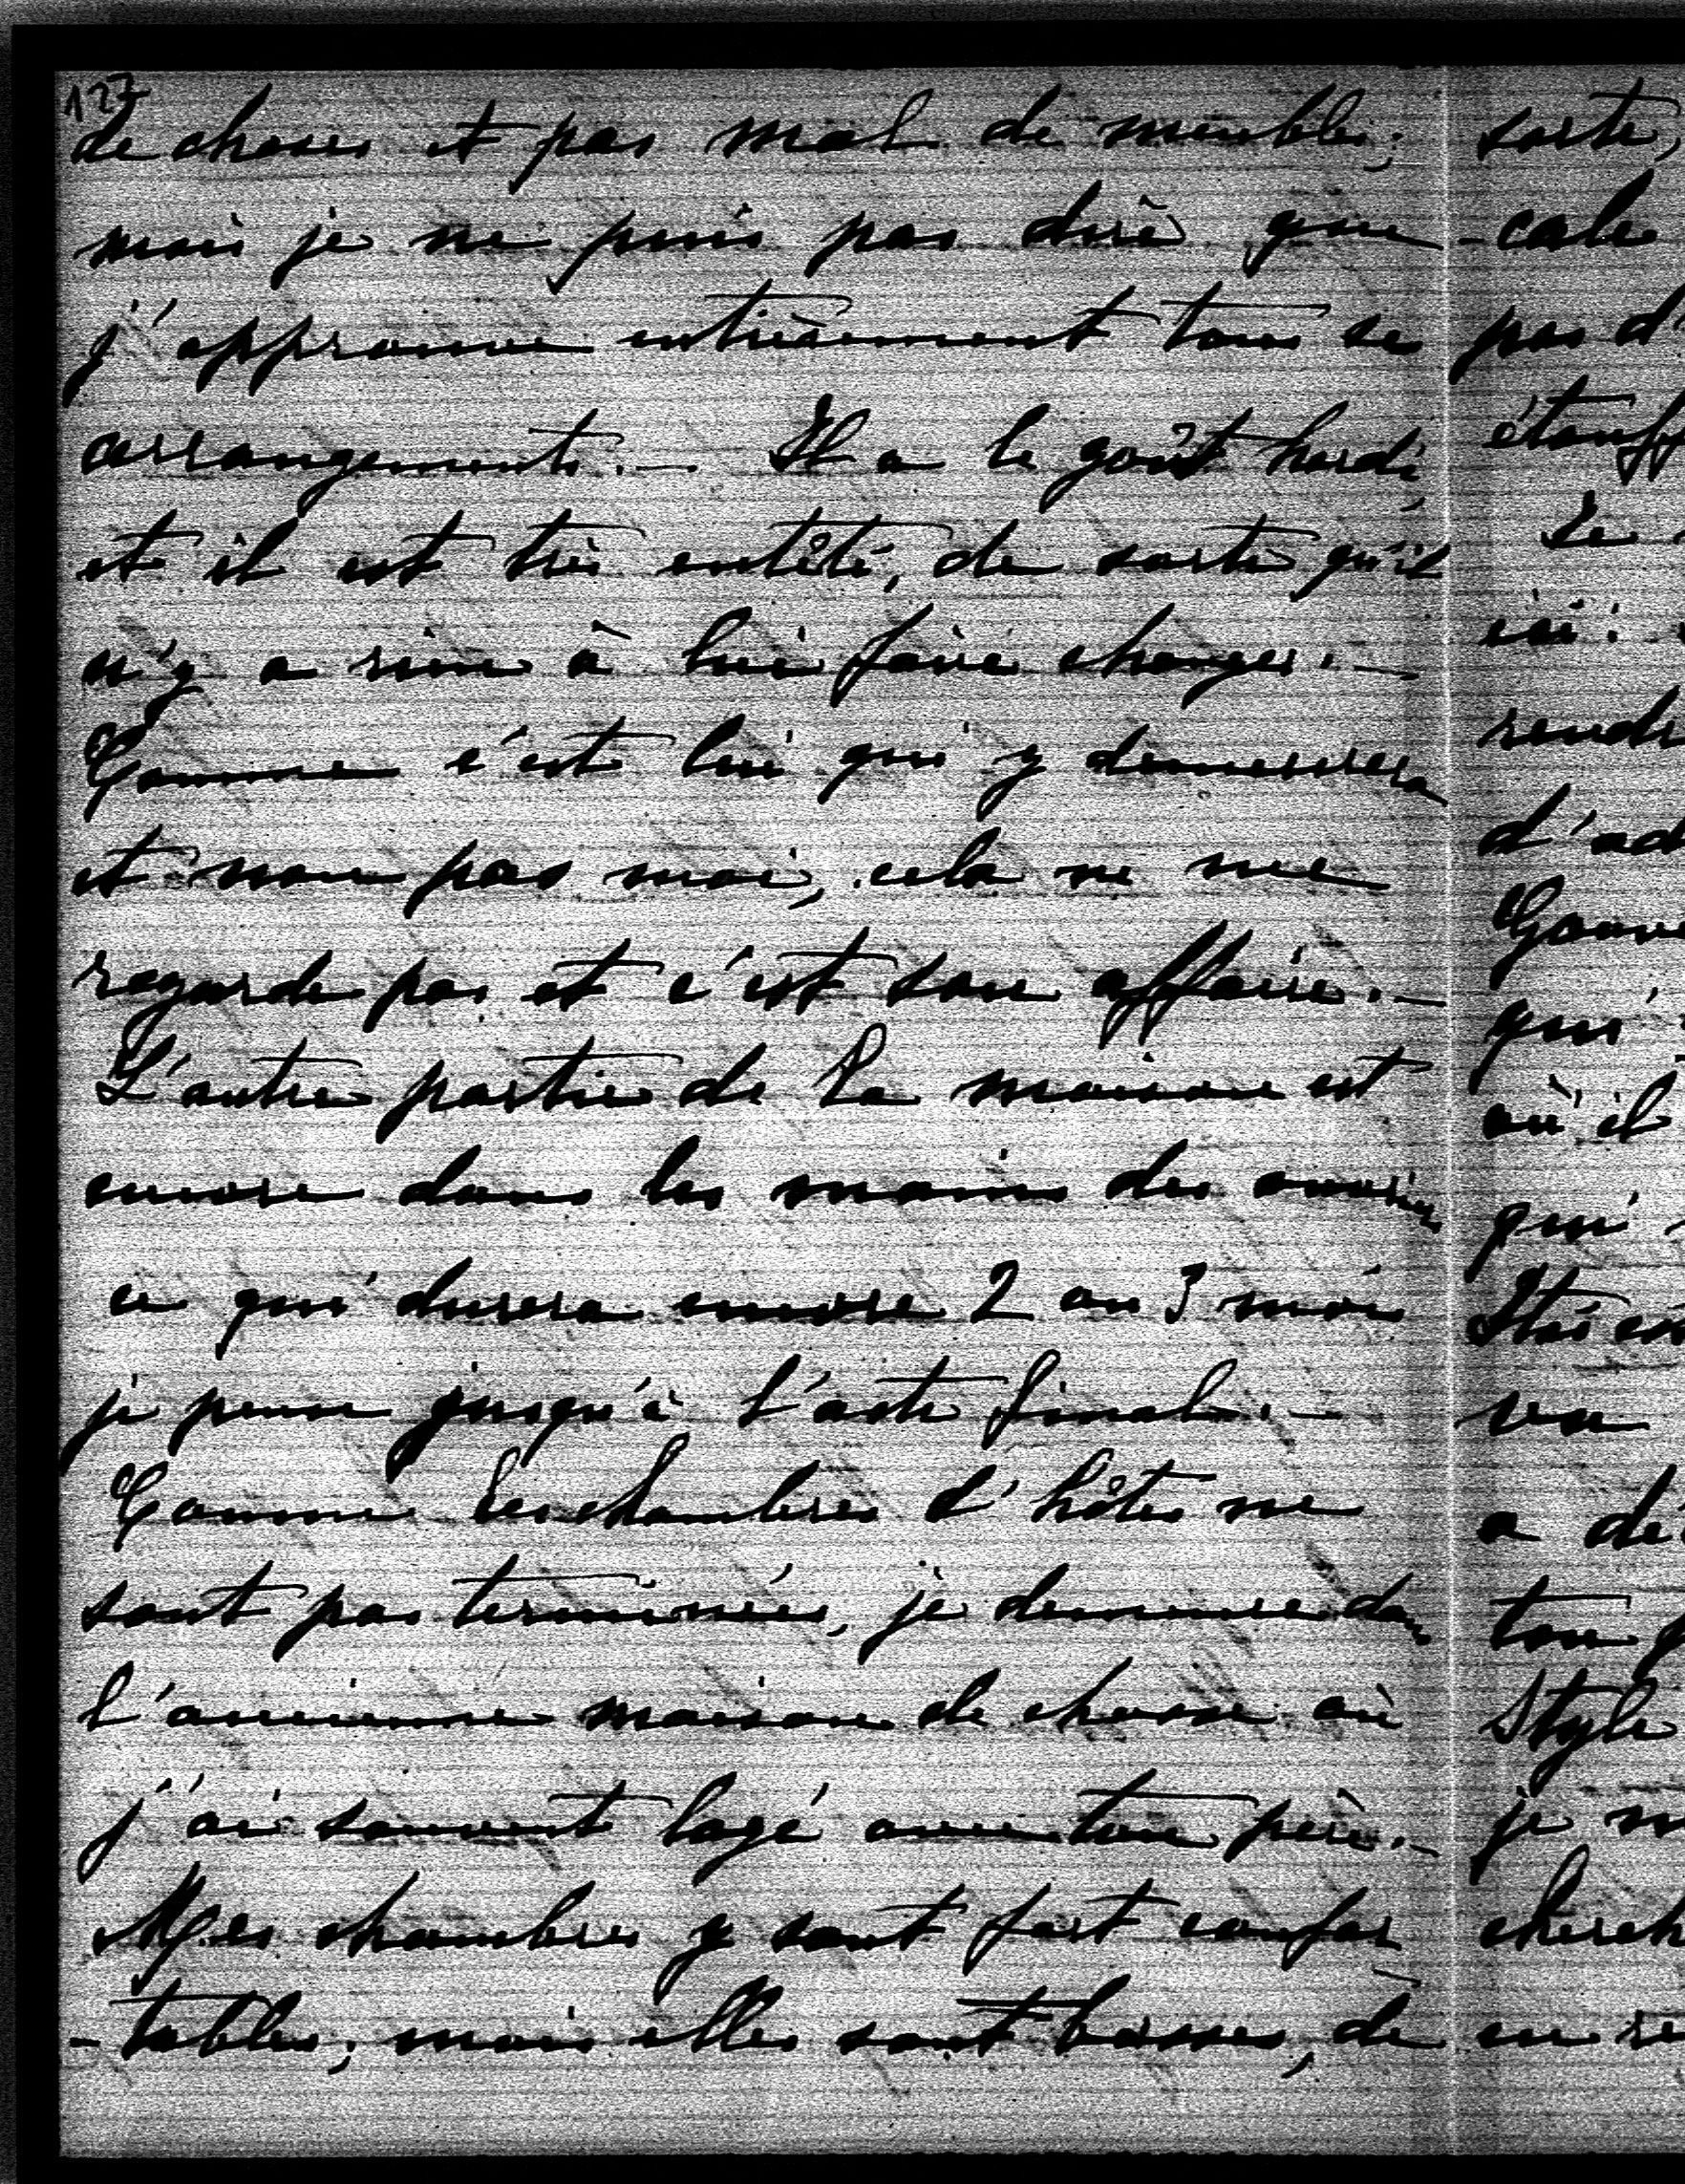 127
de choses et pas mal de meubles;
mais je ne puis pas dire que
j'approuve entièrement tous ses
arrangements. — Il a le goût hardi,
et il est très entêté, de sorte qu'il
n'y a rien à lui faire changer. —
Comme c'est lui qui y demeurera
et non pas moi, cela ne me
regarde pas et c'est son affaire. —
L'autre partie de la maison est
encore dans les mains des ouvriers
ce qui durera encore 2 ou 3 mois
je pense jusqu'à l'acte final. —
Comme les chambres d'hôtes ne
sont pas terminées, je demeure dans
l'ancienne maison de chasse où
j'ai souvent logé avec ton père. —
Mes chambres y sont fort confor
-tables; mais elles sont basses, de
sorte,
-cale
pas d'
étouff
Le
ici:
rendr
d'ad
Gouve
qui
où il
qui
vu
a dé
ton p
Style
je m
cherch
en re